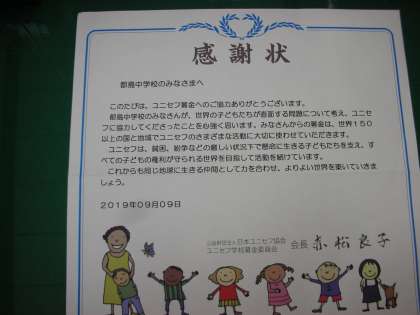 感謝状
都島中学校のみなさまへ
このたびは、ユニセフ募金へのご協力ありがとうございます。
都島中学校のみなさんが、世界の子どもたちが直面する問題について考え、ユニセ
フに協力してくださったことを心強く思います。みなさんからの募金は、世界150
以上の国と地域でユニセフのさまざまな活動に大切に使わせていただきます。
ユニセフは、貧困、紛争などの厳しい状況下で懸命に生きる子どもたちを支え、す
べての子どもの権利が守られる世界を目指して活動を続けています。
これからも同じ地球に生きる仲間として力を合わせ、よりよい世界を築いていきま
しょう。
2019年09月09日
公益財団法人日本ユニセフ協会
ユニセフ学校募金委員会
会長 赤松良子